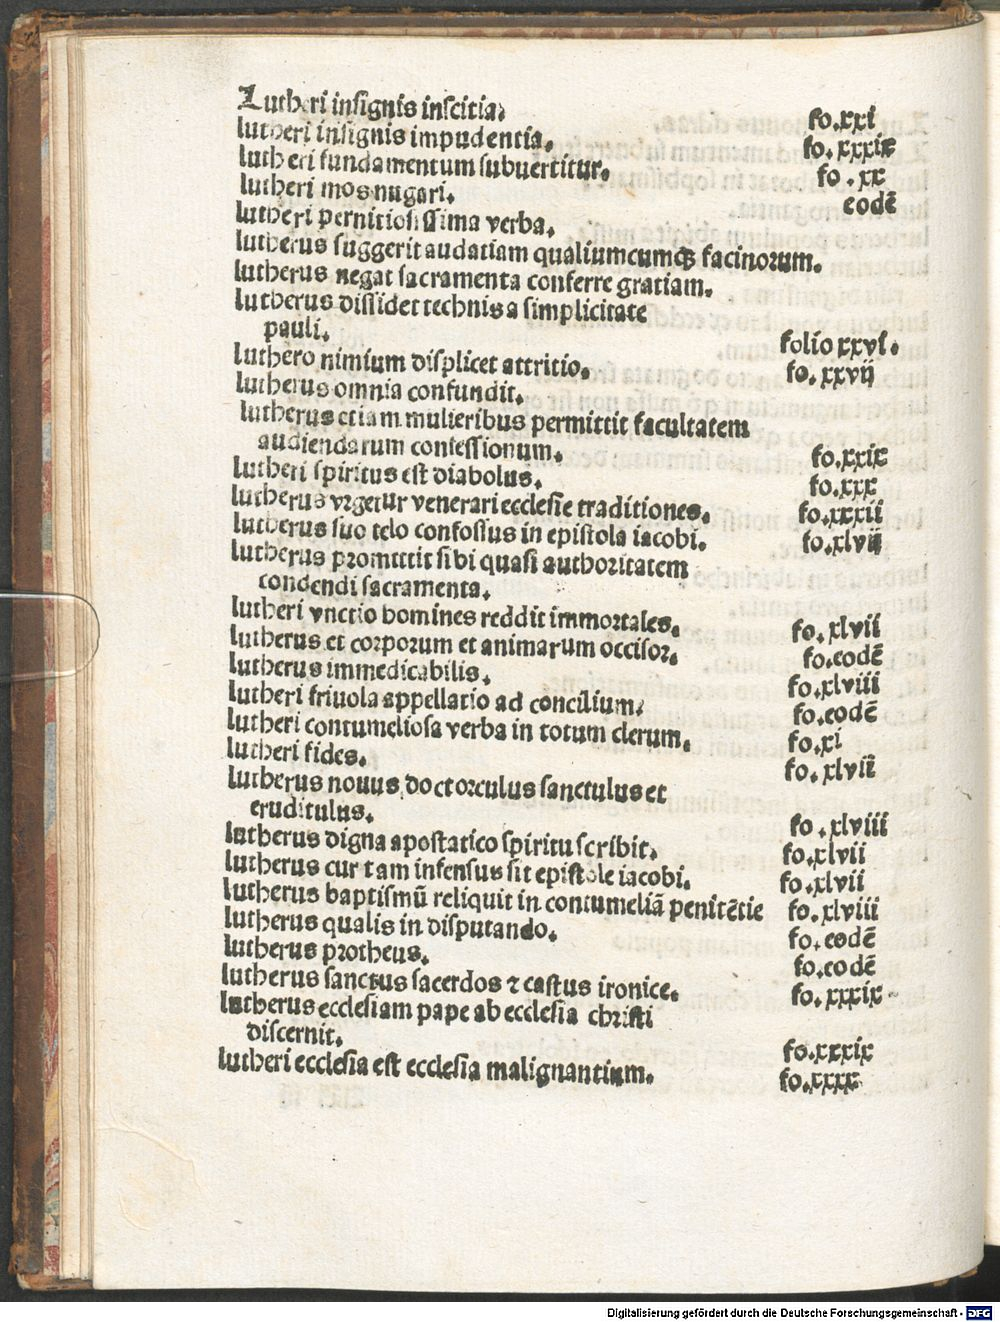 Lutheri insignis inscitia. fo.xxi
lutheri insignis impudentia. fo.xxxix
lutheri fundamentum subuertitur. fo.xx
lutheri mos nugari. eodē
lutheri pernitiosissima verba.
lutherus suggerit audatiam qualiumcumqꝫ facinorum.
lutherus negat sacramenta conferre gratiam.
lutherus dissidet technis a simplicitate
pauli. folio xxvi.
luthero nimium displicet attritio. fo.xxvij
lutherus omnia confundit.
lutherus etiam mulieribus permittit facultatem
audiendarum confessionum. fo.xxix
lutheri spiritus est diabolus. fo.xxx
lutherus vrgetur venerari ecclesie traditiones. fo.xxxii
lutherus suo telo confossus in epistola iacobi. fo.xlvij
lutherus promittit sibi quasi authoritatem
condendi sacramenta.
lutheri vnctio homines reddit immortales. fo.xlvii
lutherus et corporum et animarum occisor. fo.eodē
lutherus immedicabilis. fo.xlviii
lutheri friuola appellatio ad concilium. fo.eodē
lutheri contumeliosa verba in totum clerum. fo.xi
lutheri fides. fo.xlvii
lutherus nouus doctorculus sanctulus et
eruditulus. fo.xlviii
lutherus digna apostatico spiritu scribit. fo.xlvii
lutherus cur tam infensus sit epistole iacobi. fo.xlvii
lutherus baptismū reliquit in contumeliā penitētie fo.xlviii
lutherus qualis in disputando. fo.eodē
lutherus protheus. fo.eodē
lutherus sanctus sacerdos ⁊ castus ironice. fo.xxxix
lutherus ecclesiam pape ab ecclesia christi
discernit. fo.xxxix
lutheri ecclesia est ecclesia malignantium. fo.xxxx
Digitalisierung gefördert durch die Deutsche Forschungsgemeinschaft - DFG